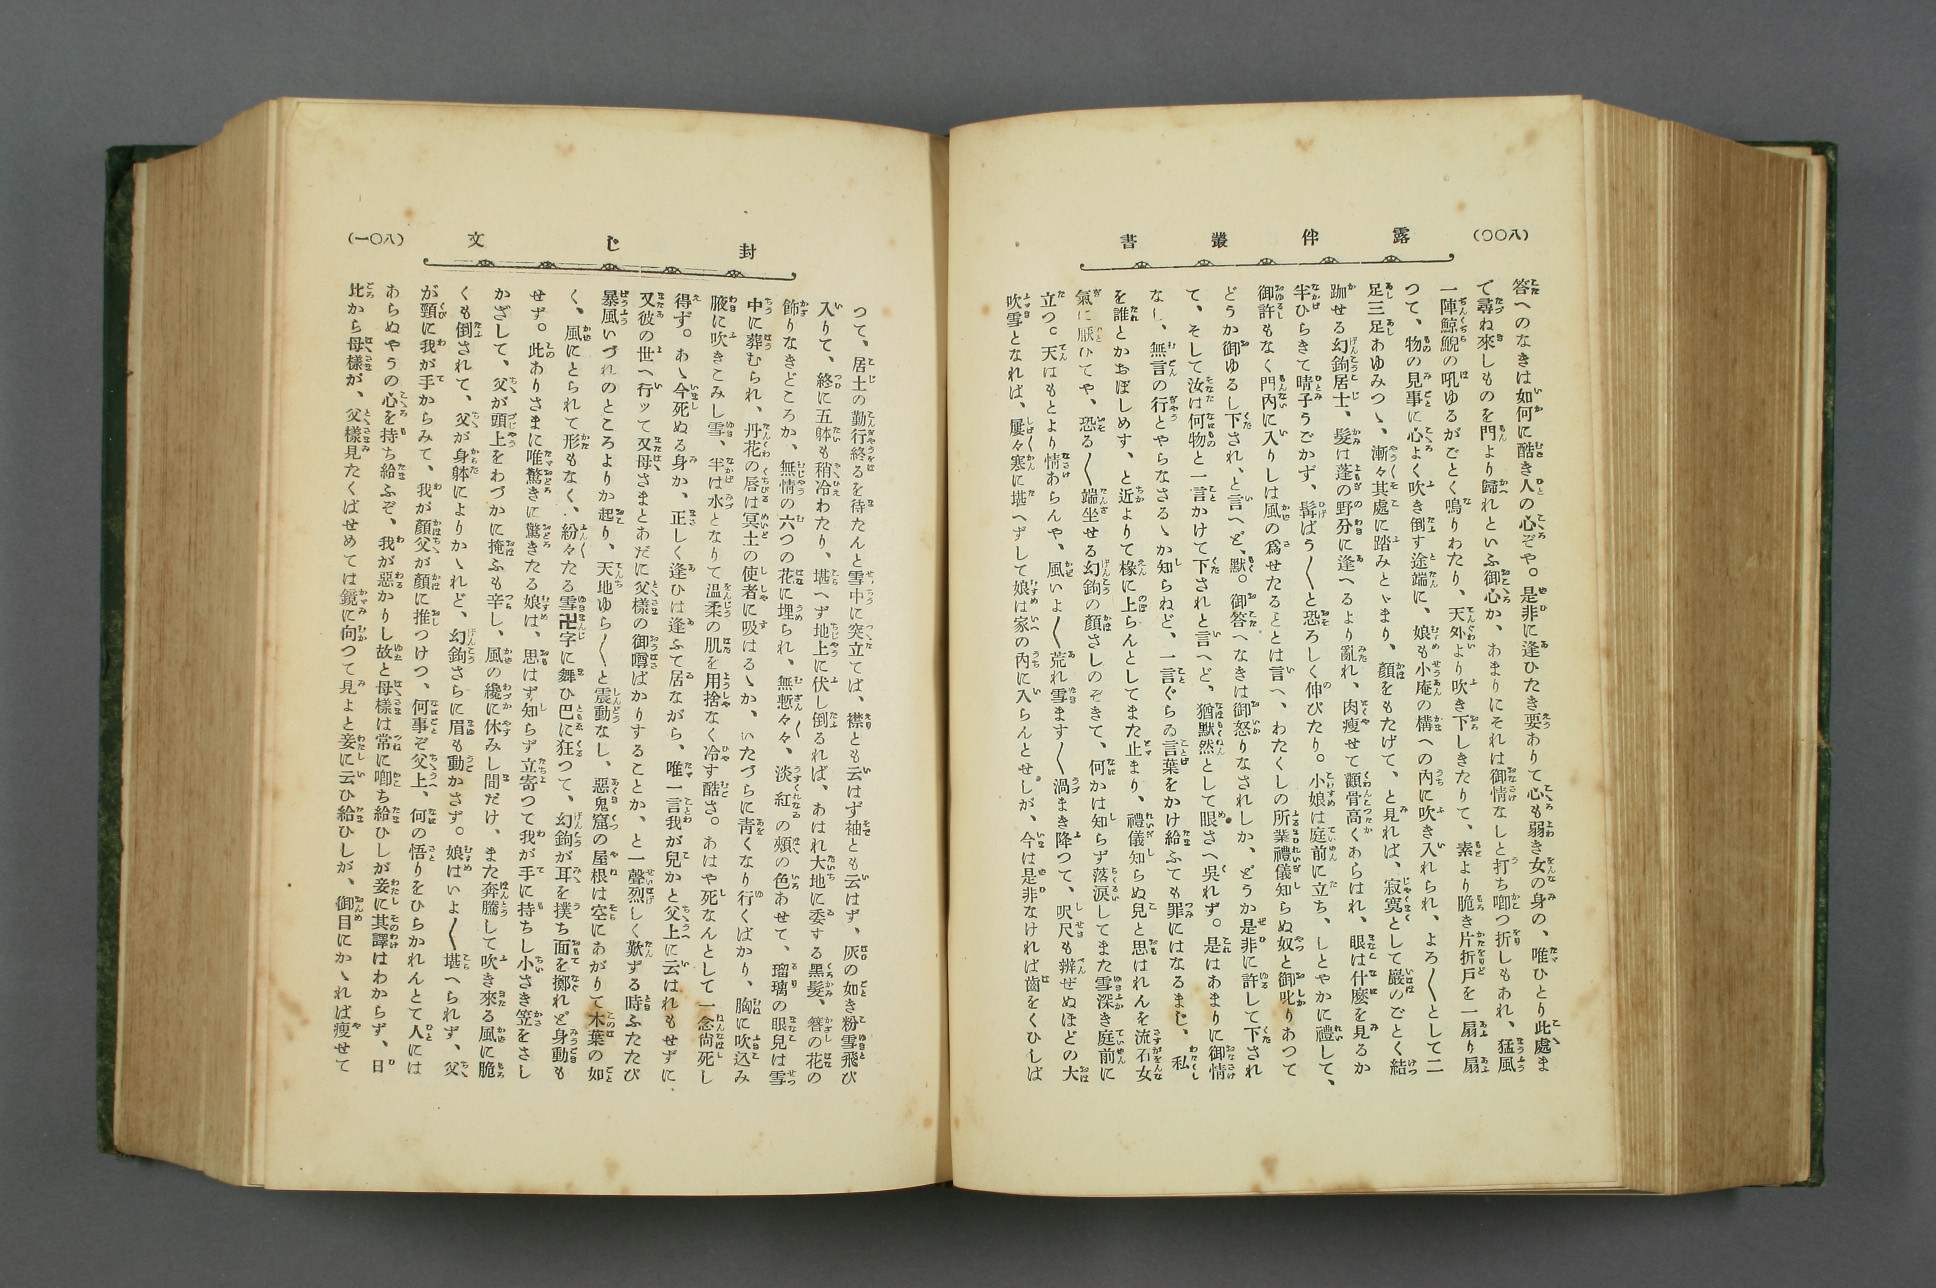 (八〇〇)
露伴叢書
答へのなきは如何に酷き人の心ぞや。是非に逢ひたき要ありて心も弱き女の身の、唯ひとり此處ま
で尋ね來しものを門より歸れといふ御心か、あまりにそれは御情なしと打ち喞つ折しもあれ、猛風
一陣鯨鯢の吼ゆるがごとく鳴りわたり、天外より吹き下しきたりて、素より脆き片折戸を一扇り扇
つて、物の見事に心よく吹き倒す途端に、娘も小庵の構への內に吹き入れられ、よろ〳〵として二
足三足あゆみつゝ、漸々其處に踏みとゞまり、顏をもたげて、と見れば、寂寞として巖のごとく結
跏せる幻鉤居士、髮は蓬の野分に逢へるより亂れ、肉瘦せて顴骨高くあらはれ、眼は什麼を見るか
半ひらきて睛子うごかず、髯ばう〳〵と恐ろしく伸びたり。小娘は庭前に立ち、しとやかに禮して、
御許もなく門內に入りしは風の爲せたるととは言へ、わたくしの所業禮儀知らぬ奴と御叱りあつて
どうか御ゆるし下され、と言へど、默。御答へなきは御怒りなされしか、どうか是非に許して下され
て、そして汝は何物と一言かけて下されと言へど、猶默然として眼さへ吳れず。是はあまりに御情
なし、無言の行とやらなさるゝか知らねど、一言ぐらゐの言葉をかけ給ふても罪にはなるまじ、私
を誰とかおぼしめす、と近よりて椽に上らんとしてまた止まり、禮儀知らぬ兒と思はれんを流石女
氣に厭ひてや、恐る〳〵端坐せる幻鉤の顏さしのぞきて、何かは知らず落淚してまた雪深き庭前に
立つ。天はもとより情あらんや、風いよ〳〵荒れ雪ます〳〵渦まき降つて、咫尺も辨ぜぬほどの大
吹雪となれば、屢々寒に堪へずして娘は家の內に入らんとせしが、今は是非なければ齒をくひしば
(八〇一)
封じ文
つて、居士の勤行終るを待たんと雪中に突立てば、襟とも云はず袖とも云はず、灰の如き粉雪飛び
入りて、終に五躰も稍冷わたり、堪へず地上に伏し倒るれば、あはれ大地に委する黑髮、簪の花の
飾りなきどころか、無情の六つの花に埋られ、無慙々々、淡紅の頰の色あせて、瑠璃の眼兒は雪
中に葬むられ、丹花の唇は冥土の使者に吸はるゝか、いたづらに靑くなり行くばかり、胸に吹込み
腋に吹きこみし雪、半は水となりて溫柔の肌を用捨なく冷す酷さ。あはや死なんとして一念尙死し
得ず。あゝ今死ぬる身か、正しく逢ひは逢ふて居ながら、唯一言我が兒かと父上に云はれもせずに、
又彼の世へ行ッて又母さまとあだに父樣の御噂ばかりすることか、と一聲烈しく歎ずる時ふたたび
暴風いづれのところよりか起り、天地ゆら〳〵と震動なし、惡鬼窟の屋根は空にあがりて木葉の如
く、風にとられて形もなく、紛々たる雪卍字に舞ひ巴に狂つて、幻鉤が耳を撲ち面を擲れど身動も
せず。此ありさまに唯驚きに驚きたる娘は、思はず知らず立寄つて我が手に持ちし小さき笠をさし
かざして、父が頭上をわづかに掩ふも辛し、風の纔に休みし間だけ、また奔騰して吹き來る風に脆
くも倒されて、父が身躰によりかゝれど、幻鉤さらに眉も動かさず。娘はいよ〳〵堪へられず、父
が頸に我が手からみて、我が顏父が顏に推つけつ、何事ぞ父上、何の悟りをひらかれんとて人には
あらぬやうの心を持ち給ふぞ、我が惡かりし故と母樣は常に喞ち給ひしが妾に其譯はわからず、日
比から母樣が、父樣見たくばせめては鏡に向つて見よと妾に云ひ給ひしが、御目にかゝれば瘦せて